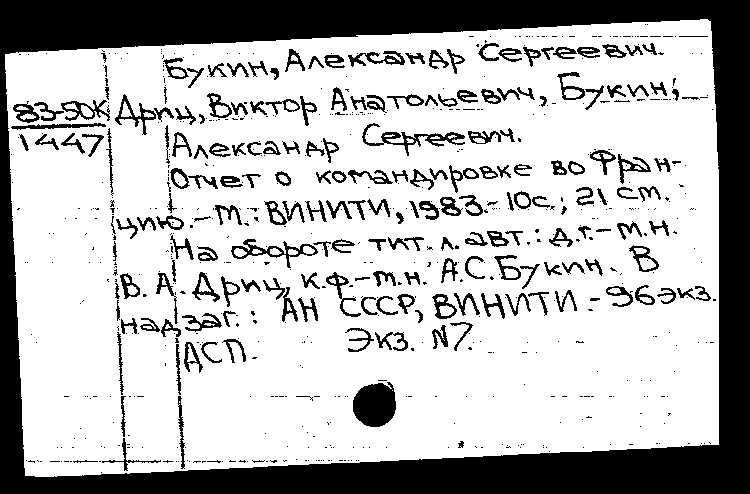 Букин, Александр Сергеевич.
83-50К Дриц, Виктор Анатольевич, Букин,
1447 Александр Сергеевич.
Отчет о командировке во Фран-
цию.-М.: ВИНИТИ, 1983.-10с.; 21 см.
На обороте тит. л. авт.: д.г.-м.н.
В. А. Дриц, к.ф.-м.н. А.С. Букин. В
надзаг.: АН СССР, ВИНИТИ.-96 экз.
ДСП. Экз. N7.